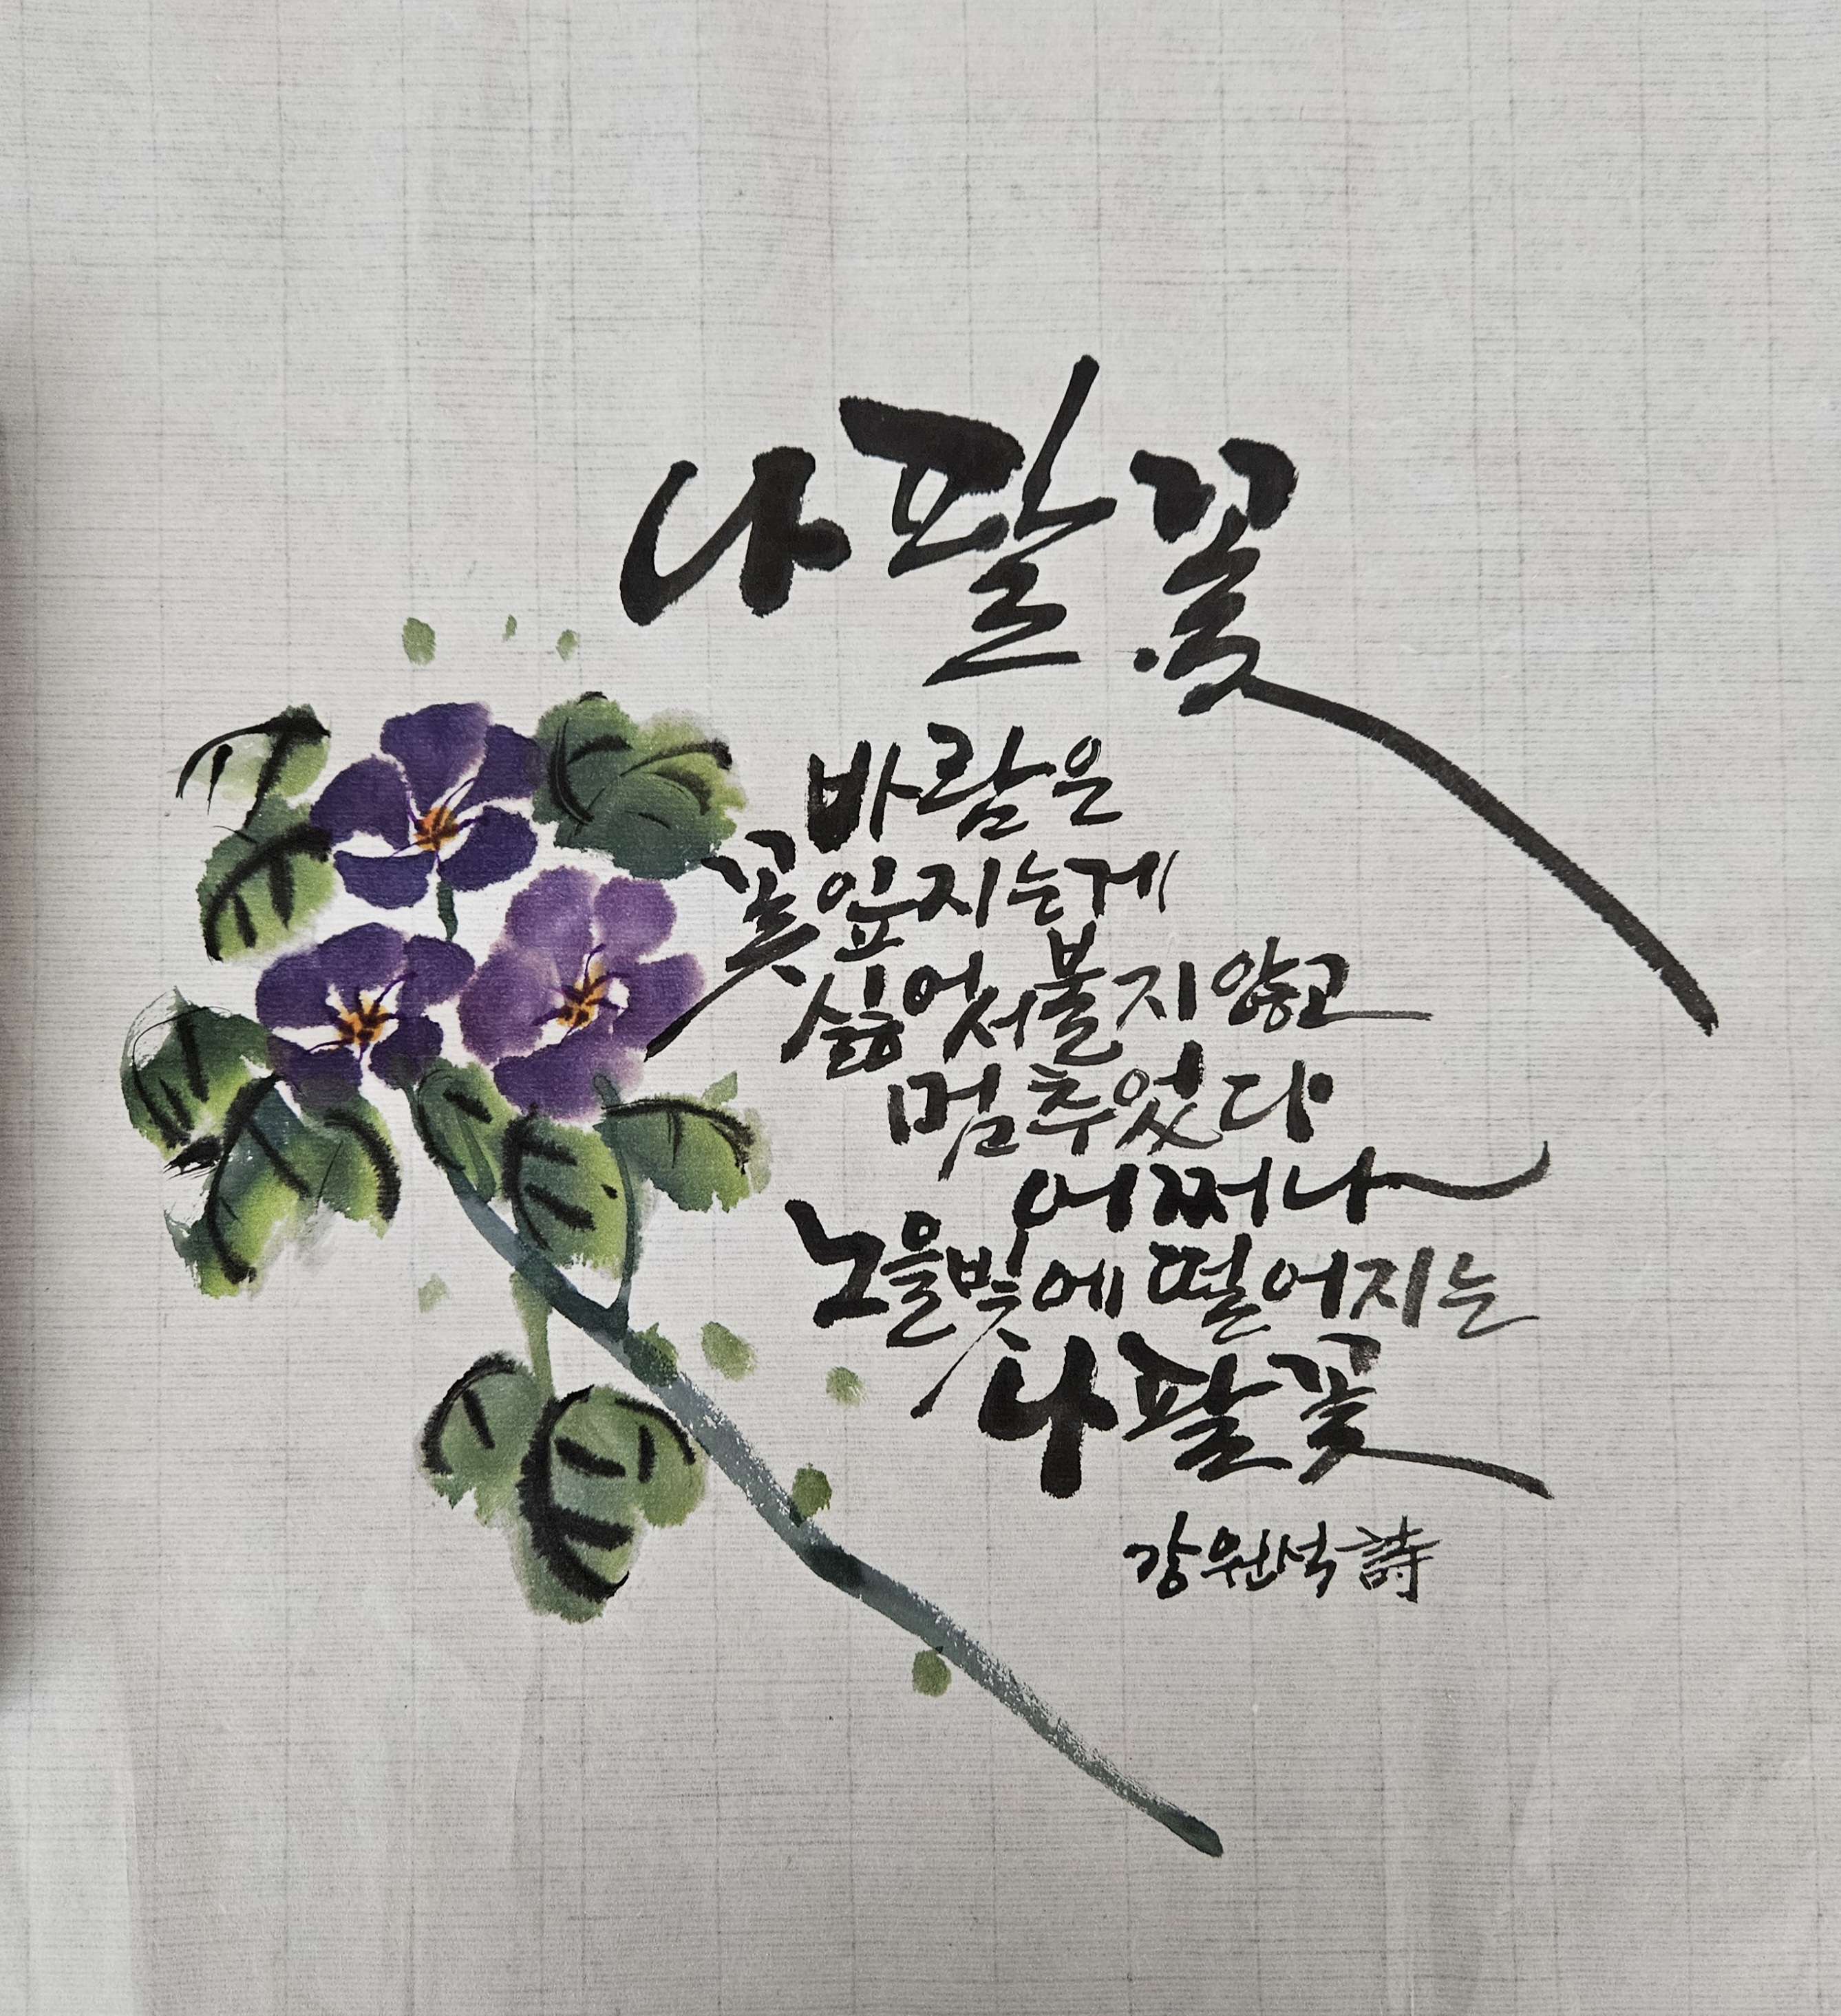 나팔꽃
바람은
꽃잎지는게
싫어서불지않고
멈추었다
어쩌나
노을빛에 떨어지는
나팔꽃
강원석 詩